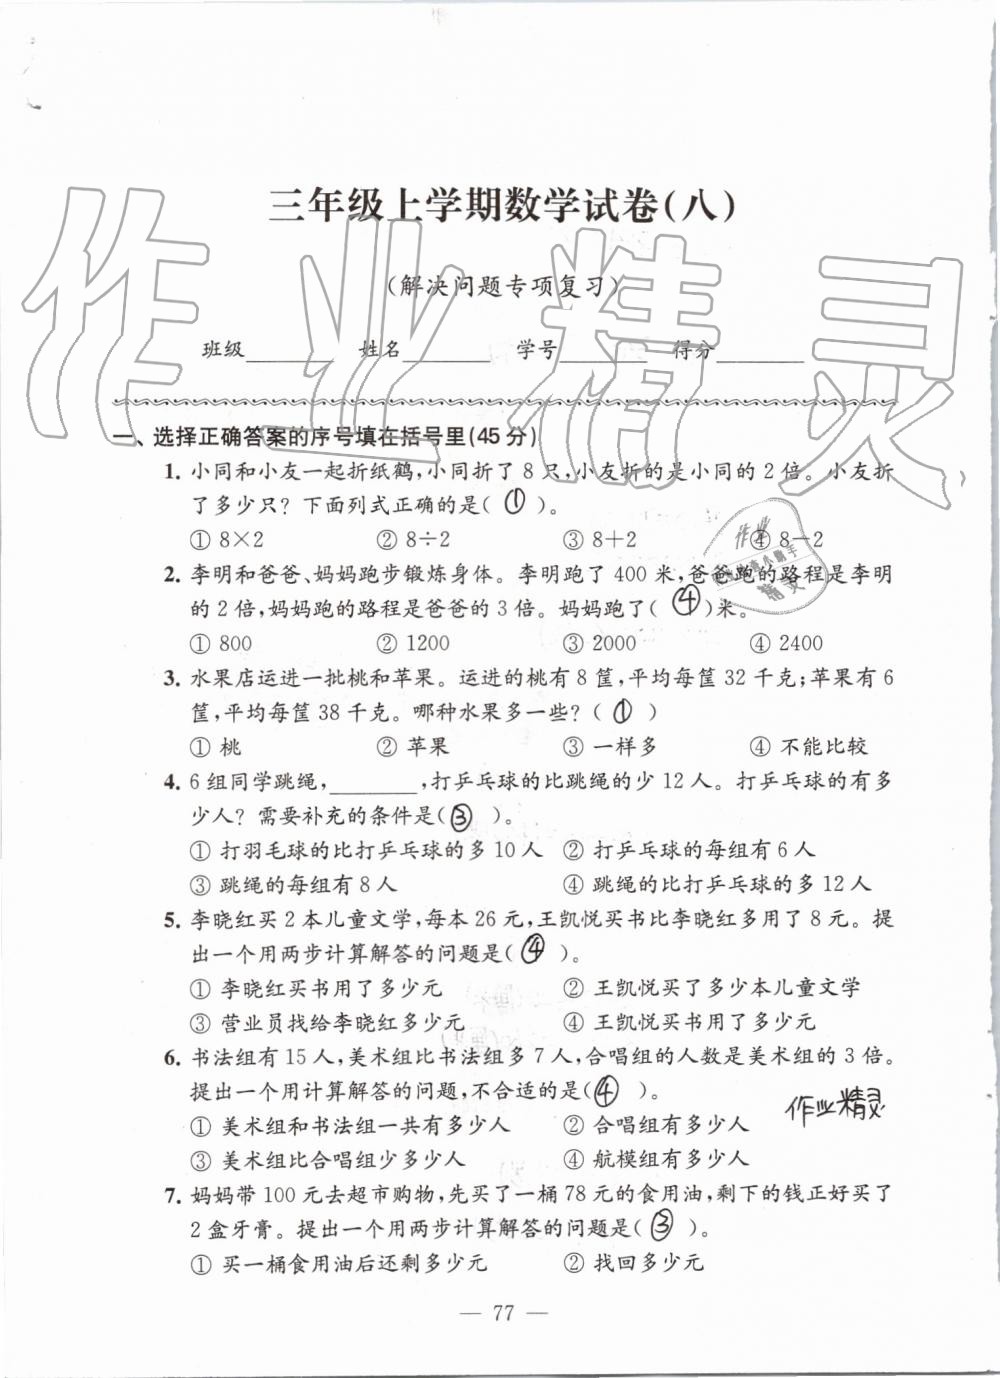 三年级上学期数学试卷(八)
(解决问题专项复习)
班级________ 姓名________ 学号________ 得分________
一、选择正确答案的序号填在括号里(45分)
1. 小同和小友一起折纸鹤,小同折了8只,小友折的是小同的2倍。小友折
了多少只?下面列式正确的是( ① )。
① 8×2 ② 8÷2 ③ 8+2 ④ 8-2
2. 李明和爸爸、妈妈跑步锻炼身体。李明跑了400米,爸爸跑的路程是李明
的2倍,妈妈跑的路程是爸爸的3倍。妈妈跑了( ④ )米。
① 800 ② 1200 ③ 2000 ④ 2400
3. 水果店运进一批桃和苹果。运进的桃有8筐,平均每筐32千克;苹果有6
筐,平均每筐38千克。哪种水果多一些?( ① )
① 桃 ② 苹果 ③ 一样多 ④ 不能比较
4. 6组同学跳绳,________,打乒乓球的比跳绳的少12人。打乒乓球的有多
少人?需要补充的条件是( ③ )。
① 打羽毛球的比打乒乓球的多10人 ② 打乒乓球的每组有6人
③ 跳绳的每组有8人 ④ 跳绳的比打乒乓球的多12人
5. 李晓红买2本儿童文学,每本26元,王凯悦买书比李晓红多用了8元。提
出一个用两步计算解答的问题是( ④ )。
① 李晓红买书用了多少元 ② 王凯悦买了多少本儿童文学
③ 营业员找给李晓红多少元 ④ 王凯悦买书用了多少元
6. 书法组有15人,美术组比书法组多7人,合唱组的人数是美术组的3倍。
提出一个用计算解答的问题,不合适的是( ④ )。
作业精灵
① 美术组和书法组一共有多少人 ② 合唱组有多少人
③ 美术组比合唱组少多少人 ④ 航模组有多少人
7. 妈妈带100元去超市购物,先买了一桶78元的食用油,剩下的钱正好买了
2盒牙膏。提出一个用两步计算解答的问题是( ③ )。
① 买一桶食用油后还剩多少元 ② 找回多少元
— 77 —
作业精灵
作业
精灵